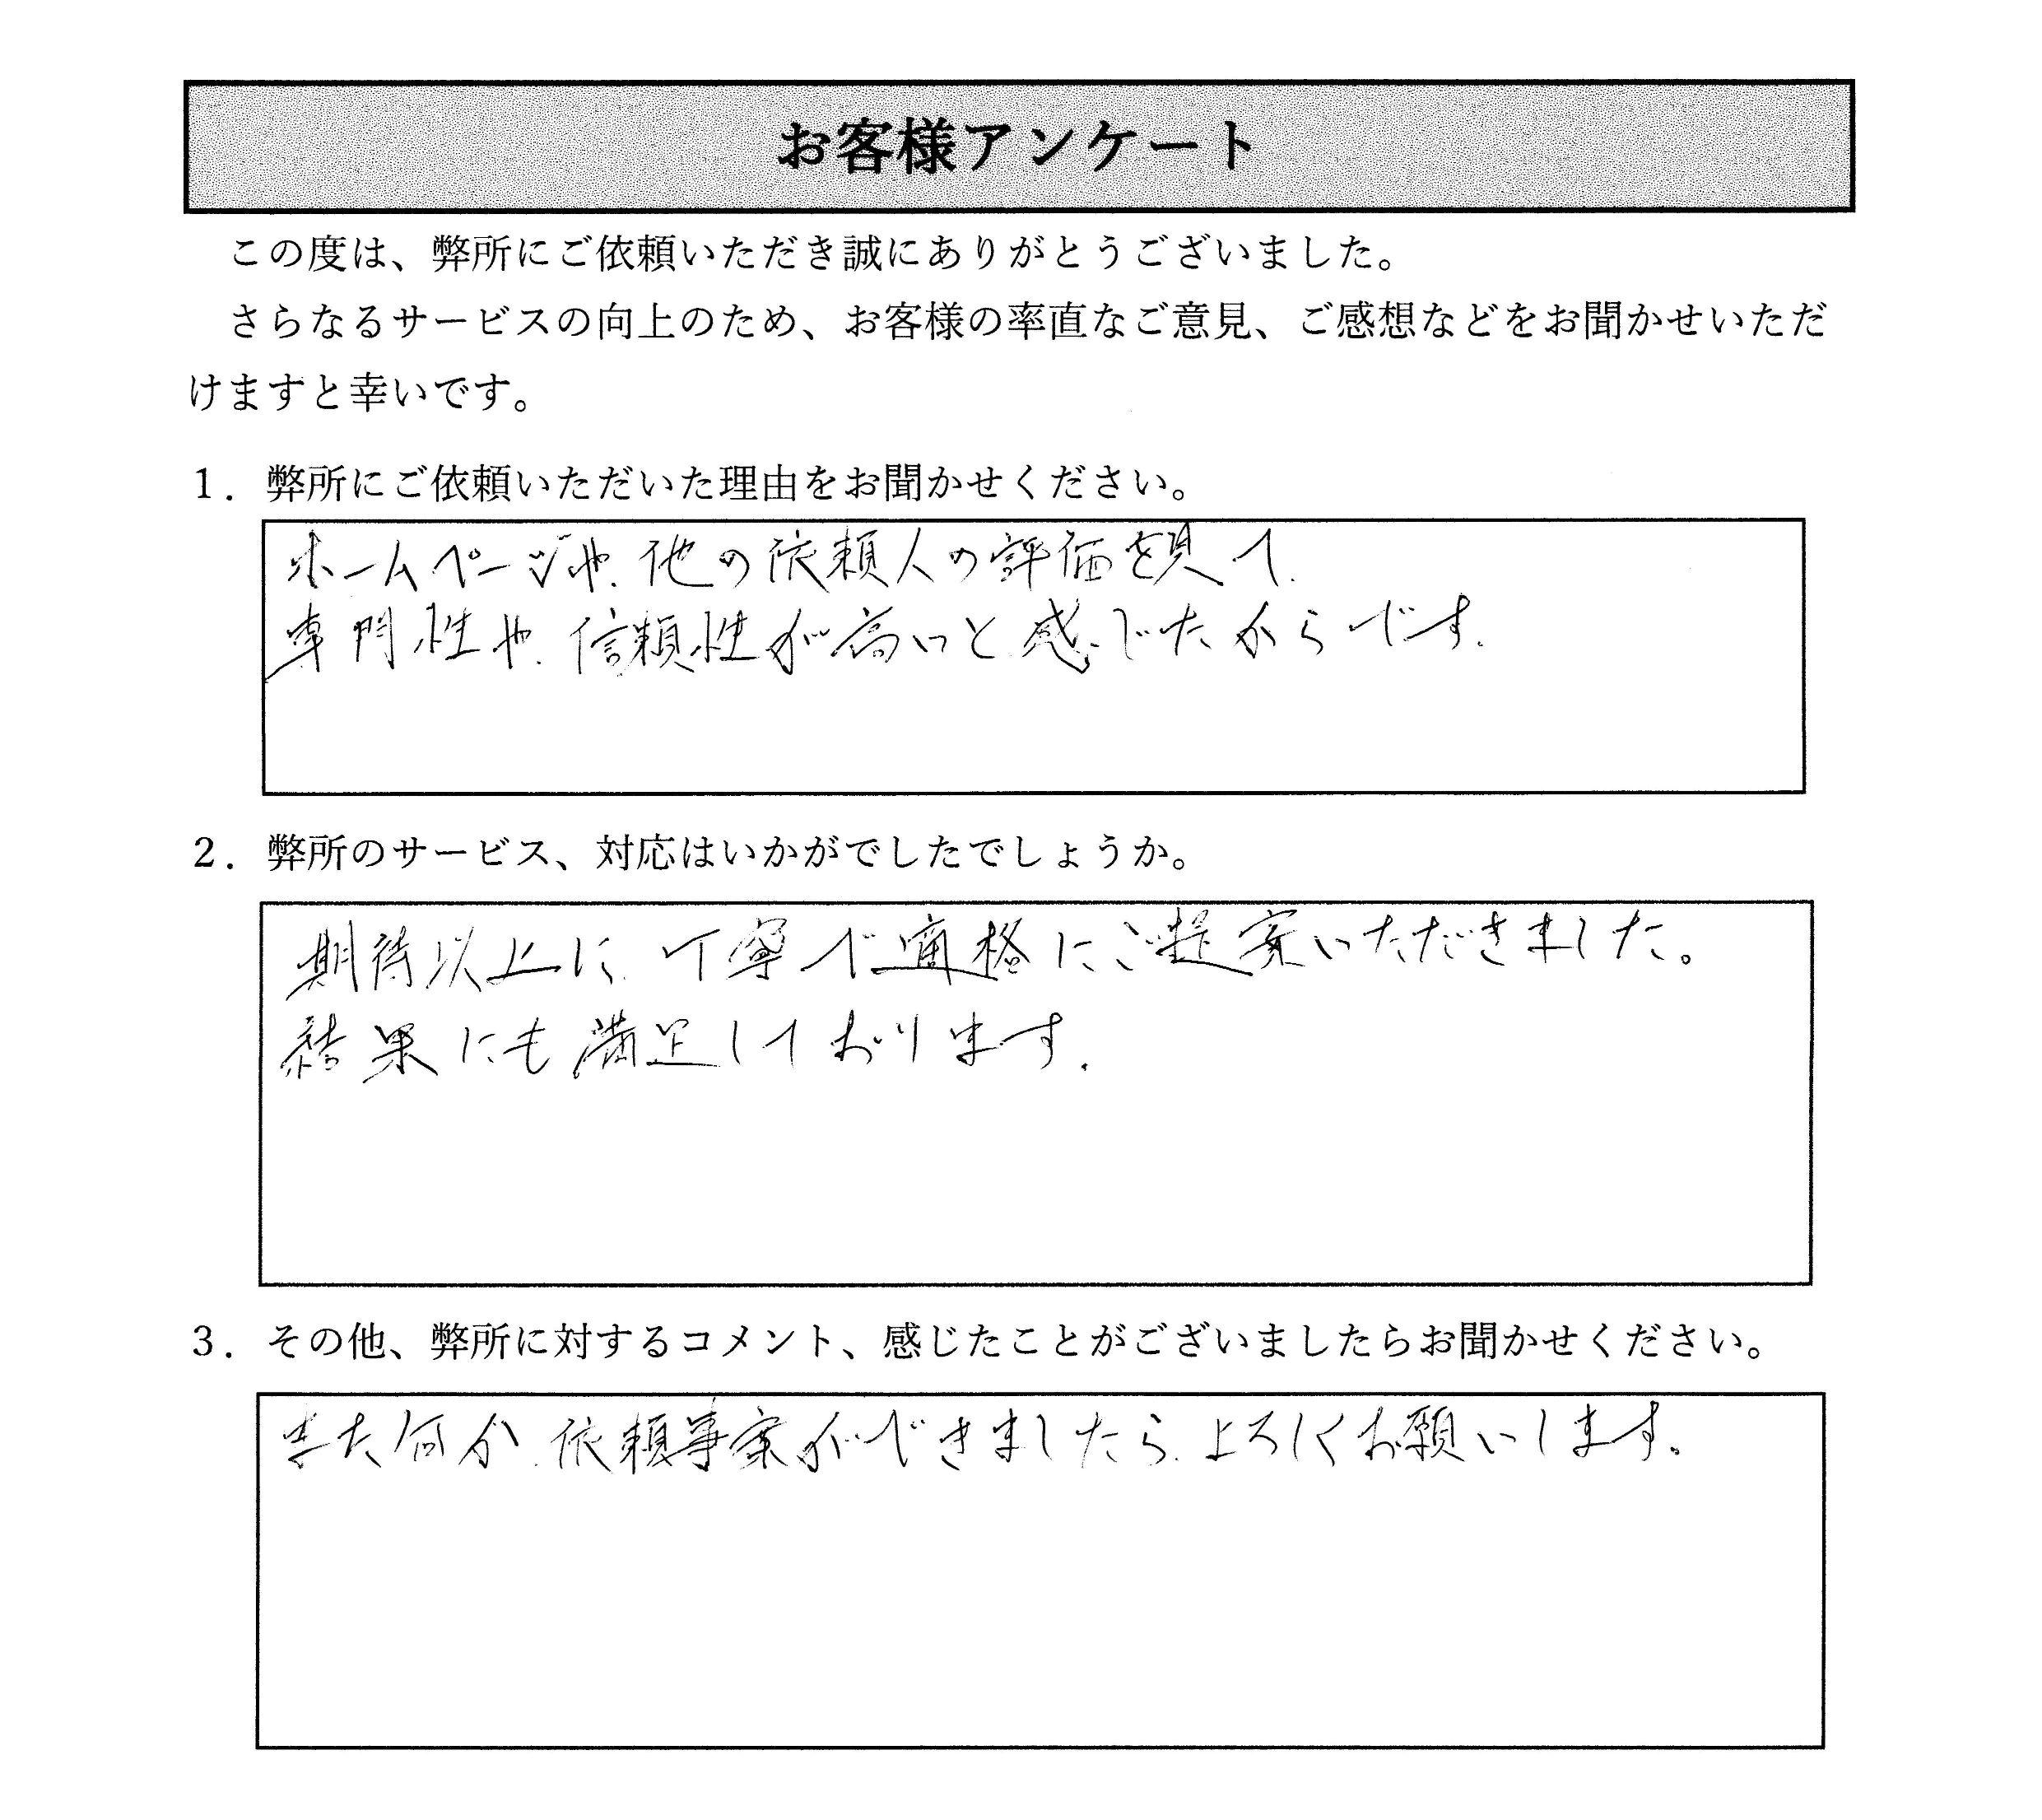 お客様アンケート
この度は、弊所にご依頼いただき誠にありがとうございました。
さらなるサービスの向上のため、お客様の率直なご意見、ご感想などをお聞かせいただ
けますと幸いです。
１．弊所にご依頼いただいた理由をお聞かせください。
ホームページや、他の依頼人の評価を見て、
専門性や、信頼性が高いと感じたからです。
２．弊所のサービス、対応はいかがでしたでしょうか。
期待以上に、丁寧で適格にご提案いただきました。
結果にも満足しております。
３．その他、弊所に対するコメント、感じたことがございましたらお聞かせください。
また何か、依頼事案ができましたら、よろしくお願いします。